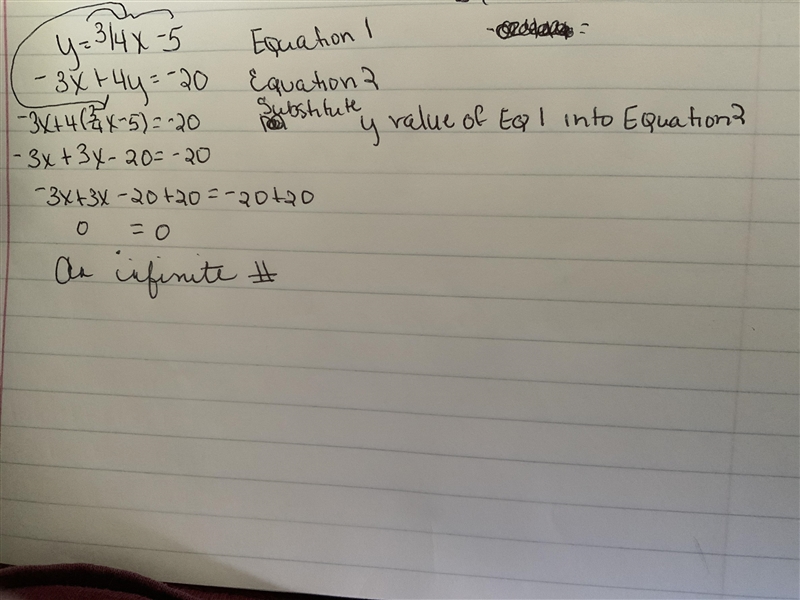 y = 3/4x - 5 Equation 1 =
-3x + 4y = -20 Equation 2
-3x + 4(3/4x - 5) = -20 Substitute y value of EQ 1 into Equation 2
-3x + 3x - 20 = -20
-3x + 3x - 20 + 20 = -20 + 20
0 = 0
An infinite #